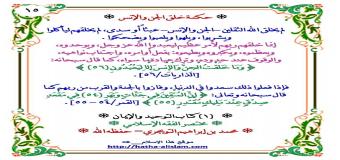 ١٥
❁ حكمة خلق الجن والإنس ❁
لم يخلق الله الثقلين -الجن والإنس- عبثاً أو سدى، لم يخلقهم ليأكلوا
ويشربوا، ويلهوا ويلعبوا ويضحكوا.
إنما خلقهم ربهم لأمر عظيم ليعبدوا الله عز وجل، ويوحدوه،
ويعظموه، ويكبروه ويطيعوه؛ بفعل أوامره، واجتناب نواهيه،
والوقوف عند حدوده، وترك عبادة ما سواه، كما قال سبحانه:
﴿ وَمَا خَلَقْتُ الْجِنَّ وَالْإِنْسَ إِلَّا لِيَعْبُدُونِ (٥٦) ﴾
[الذاريات/٥٦].
فإذا فعلوا ذلك سعدوا في الدنيا، وفازوا بالجنة والقرب من ربهم كما
قال سبحانه وتعالى: ﴿ إِنَّ الْمُتَّقِينَ فِي جَنَّاتٍ وَنَهَرٍ (٥٤) فِي مَقْعَدِ
صِدْقٍ عِنْدَ مَلِيكٍ مُقْتَدِرٍ (٥٥) ﴾ [القمر/٥٤-٥٥].
❁ (١) كتاب التوحيد والإيمان ❁
مختصر الفقه الإسلامي
❁ محمد بن إبراهيم التويجري - حفظه الله ❁
موقع هذا الإسلام
http://hatha-alislam.com